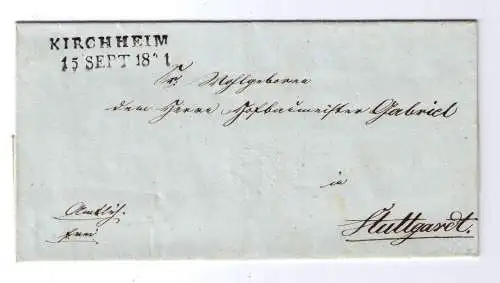 KIRCHHEIM
15 SEPT 18 1
Sr. Wohlgeboren
dem Herrn Hofbaumeister Gabriel
in
Stuttgardt.
Amtlich.
frei